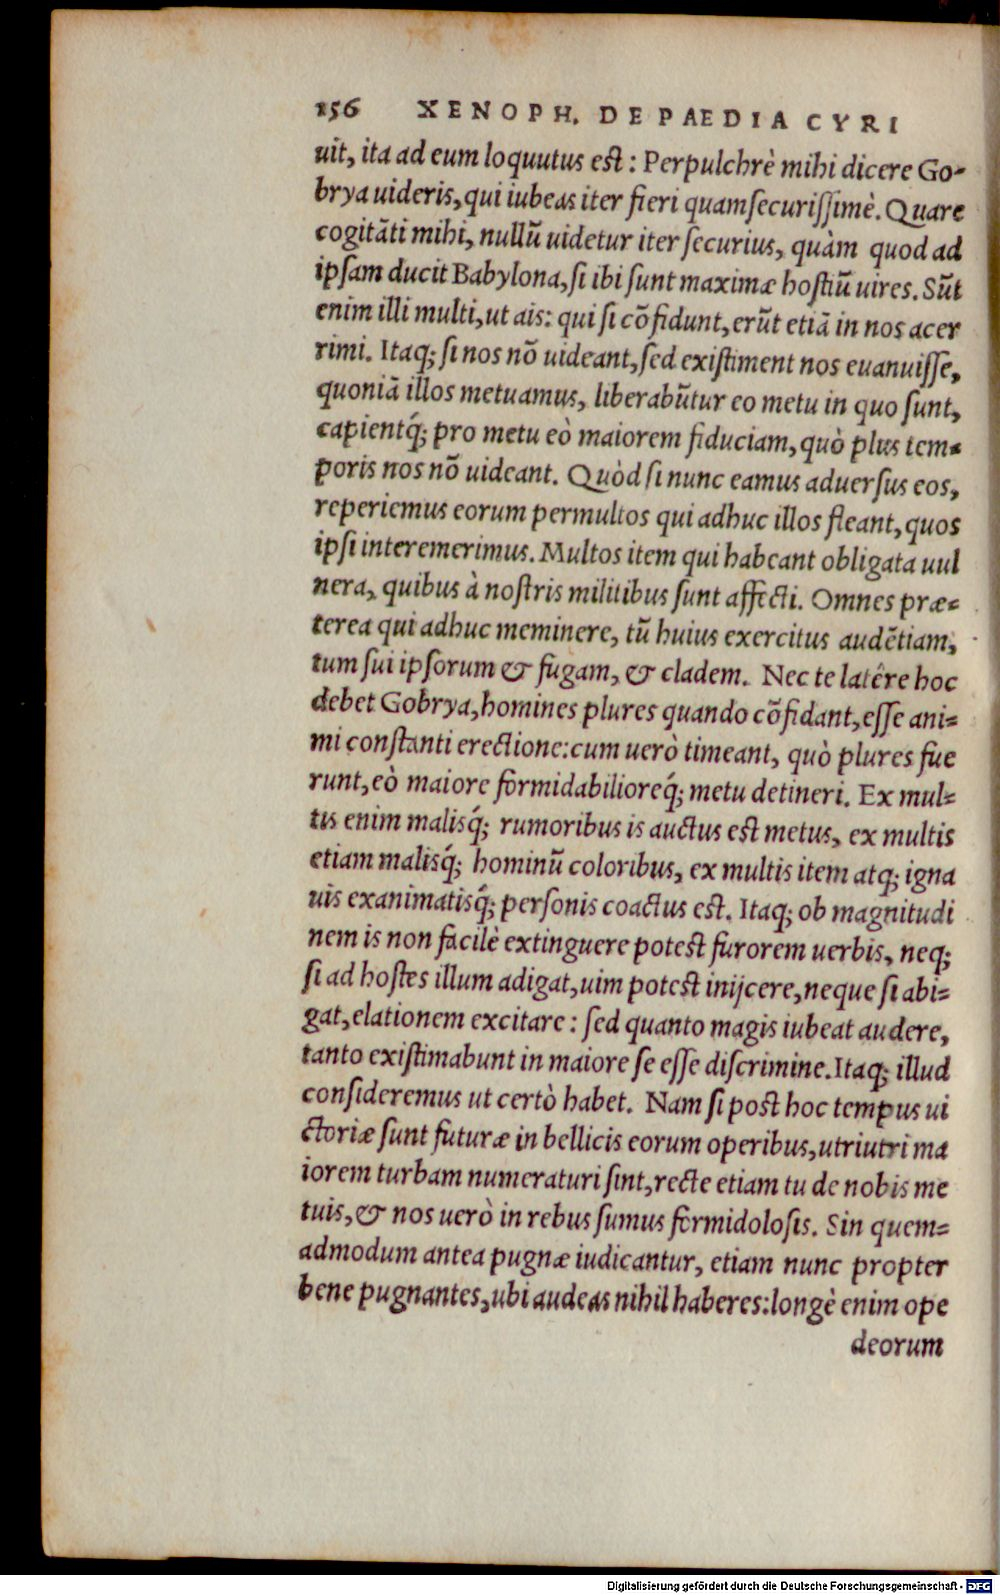 156 XENOPH. DE PAEDIA CYRI
uit, ita ad eum loquutus est : Perpulchrè mihi dicere Go-
brya uideris, qui iubeas iter fieri quamsecurissimè. Quare
cogitāti mihi, nullū uidetur iter securius, quàm quod ad
ipsam ducit Babylona, si ibi sunt maximæ hostiū uires. Sūt
enim illi multi, ut ais: qui si cōfidunt, erūt etiā in nos acer
rimi. Itaq; si nos nō uideant, sed existiment nos euanuisse,
quoniā illos metuamus, liberabūtur eo metu in quo sunt,
capientq́; pro metu eò maiorem fiduciam, quò plus tem-
poris nos nō uideant. Quòd si nunc eamus aduersus eos,
reperiemus eorum permultos qui adhuc illos fleant, quos
ipsi interemerimus. Multos item qui habeant obligata uul
nera, quibus à nostris militibus sunt affecti. Omnes præ-
terea qui adhuc meminere, tū huius exercitus audētiam,
tum sui ipsorum & fugam, & cladem. Nec te latêre hoc
debet Gobrya, homines plures quando cōfidant, esse ani-
mi constanti erectione: cum uerò timeant, quò plures fue
runt, eò maiore formidabilioreq́; metu detineri. Ex mul-
tis enim malisq́; rumoribus is auctus est metus, ex multis
etiam malisq́; hominū coloribus, ex multis item atq; igna
uis exanimatisq́; personis coactus est. Itaq; ob magnitudi
nem is non facilè extinguere potest furorem uerbis, neq;
si ad hostes illum adigat, uim potest inijcere, neque si abi-
gat, elationem excitare : sed quanto magis iubeat audere,
tanto existimabunt in maiore se esse discrimine. Itaq; illud
consideremus ut certò habet. Nam si post hoc tempus ui
ctoriæ sunt futuræ in bellicis eorum operibus, utriutri ma
iorem turbam numeraturi sint, recte etiam tu de nobis me
tuis, & nos uerò in rebus sumus formidolosis. Sin quem-
admodum antea pugnæ iudicantur, etiam nunc propter
bene pugnantes, ubi audeas nihil haberes: longè enim ope
deorum
Digitalisierung gefördert durch die Deutsche Forschungsgemeinschaft - DFG